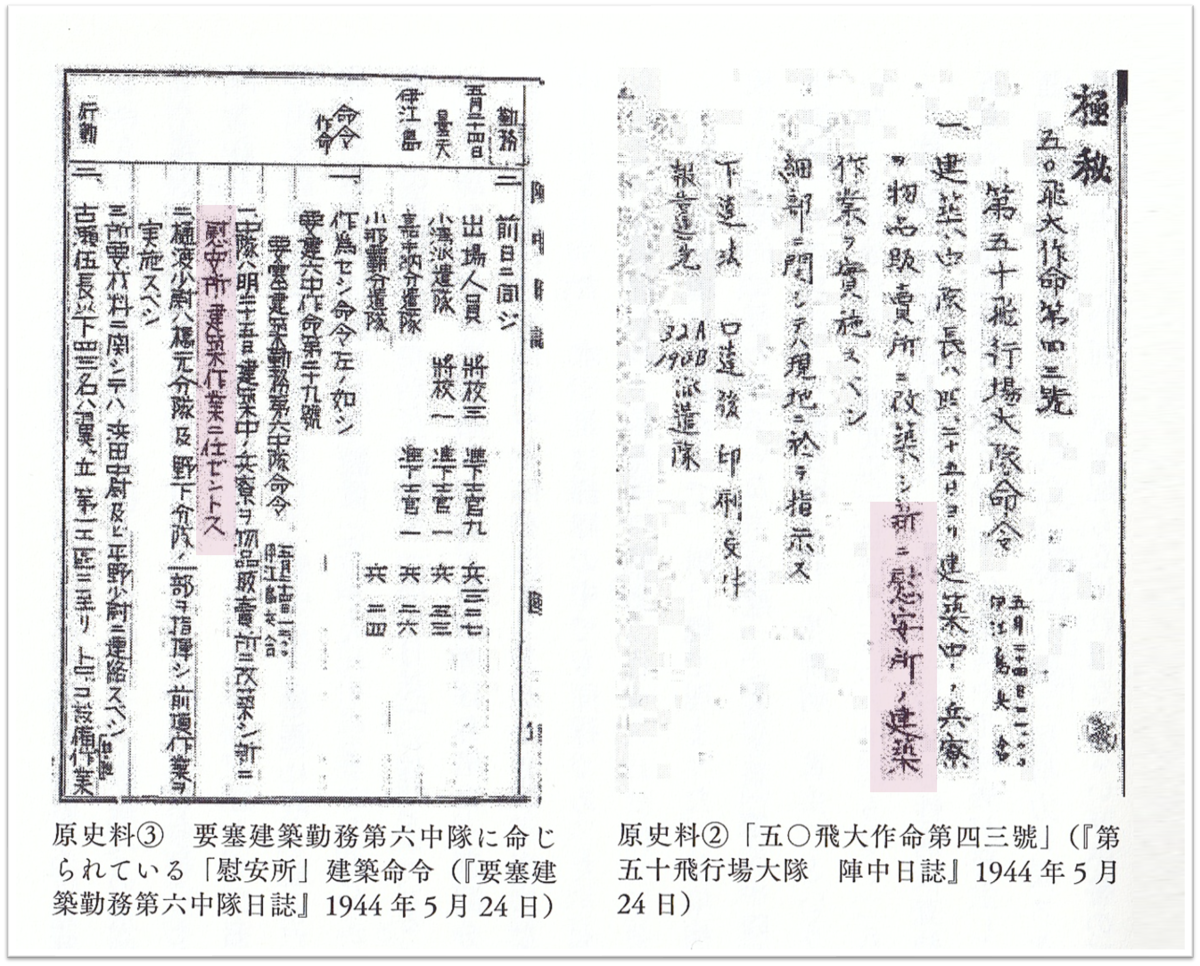 極秘
五〇飛大作命第四三號
第五十飛行場大隊命令
五月二十四日
伊江島兵舎
一、建築中隊長ハ明二十五日ヨリ建築中ノ兵寮
ヲ物品販賣所ニ改築シ新ニ慰安所ノ建築
作業ヲ實施スベシ
細部ニ関シテハ現地ニ於テ指示ス
下達法 口達後印刷交付
報告先 32A 19AB派遣隊
原史料②「五〇飛大作命第四三號」(『第
五十飛行場大隊 陣中日誌』1944年5月
24日)
勤務
五月二十四日
曇天
伊江島
命令
作命
行動
二 前日ニ同ジ
出場人員 將校三 准下士官九 兵三二七
小湾派遣隊 將校一 准下士官一 兵五三
嘉手納分遣隊 准下士官一 兵二六
小那覇分遣隊 兵二四
一、作為セシ命令左ノ如シ
要塞六中作命第二十九號
要塞建築勤務第六中隊命令
伊江島兵舎
一、中隊ハ明二十五日建築中ノ兵寮ヲ物品販賣所ニ改築シ新ニ
慰安所ノ建築作業ニ任ゼントス
二、樋渡少尉ハ橋元分隊及野下分隊ノ一部ヲ指揮シ前項作業ヲ
実施スベシ
三、所要材料ニ関シテハ浜田中尉及ビ平野少尉ニ連絡スベシ
二、古瀬伍長以下四三名ハ
原史料③ 要塞建築勤務第六中隊に命じ
られている「慰安所」建築命令(『要塞建
築勤務第六中隊日誌』1944年5月24日)